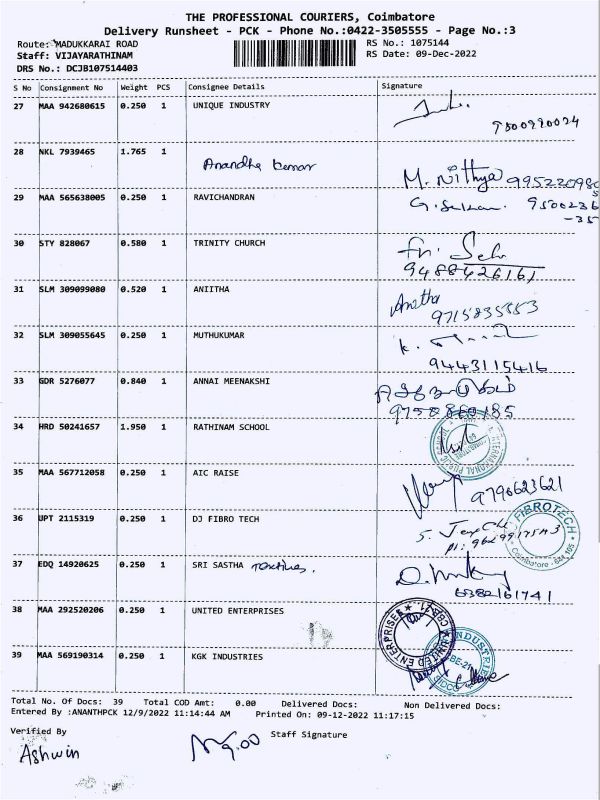 THE PROFESSIONAL COURIERS, Coimbatore
Delivery Runsheet - PCK - Phone No.:0422-3505555 - Page No.:3
Route: MADUKKARAI ROAD RS No.: 1075144
Staff: VIJAYARATHINAM RS Date: 09-Dec-2022
DRS No.: DCJB107514403
S No Consignment No Weight PCS Consignee Details Signature
27 MAA 942680615 0.250 1 UNIQUE INDUSTRY
28 NKL 7939465 1.765 1
Anandha kumar
M. Nithya
29 MAA 565638005 0.250 1 RAVICHANDRAN
30 STY 828067 0.580 1 TRINITY CHURCH
9488426161
31 SLM 309099080 0.520 1 ANIITHA
Anitha
9715835553
32 SLM 309055645 0.250 1 MUTHUKUMAR
9443115416
33 GDR 5276077 0.840 1 ANNAI MEENAKSHI
34 HRD 50241657 1.950 1 RATHINAM SCHOOL
35 MAA 567712058 0.250 1 AIC RAISE
9790623621
36 UPT 2115319 0.250 1 DJ FIBRO TECH
FIBROTECH
Coimbatore
37 EDQ 14920625 0.250 1 SRI SASTHA
6382161741
38 MAA 292520206 0.250 1 UNITED ENTERPRISES
UNITED ENTERPRISES
39 MAA 569190314 0.250 1 KGK INDUSTRIES
INDUSTRIES
Total No. Of Docs: 39 Total COD Amt: 0.00 Delivered Docs: Non Delivered Docs:
Entered By :ANANTHPCK 12/9/2022 11:14:44 AM Printed On: 09-12-2022 11:17:15
Verified By Staff Signature
Ashwin 9.00